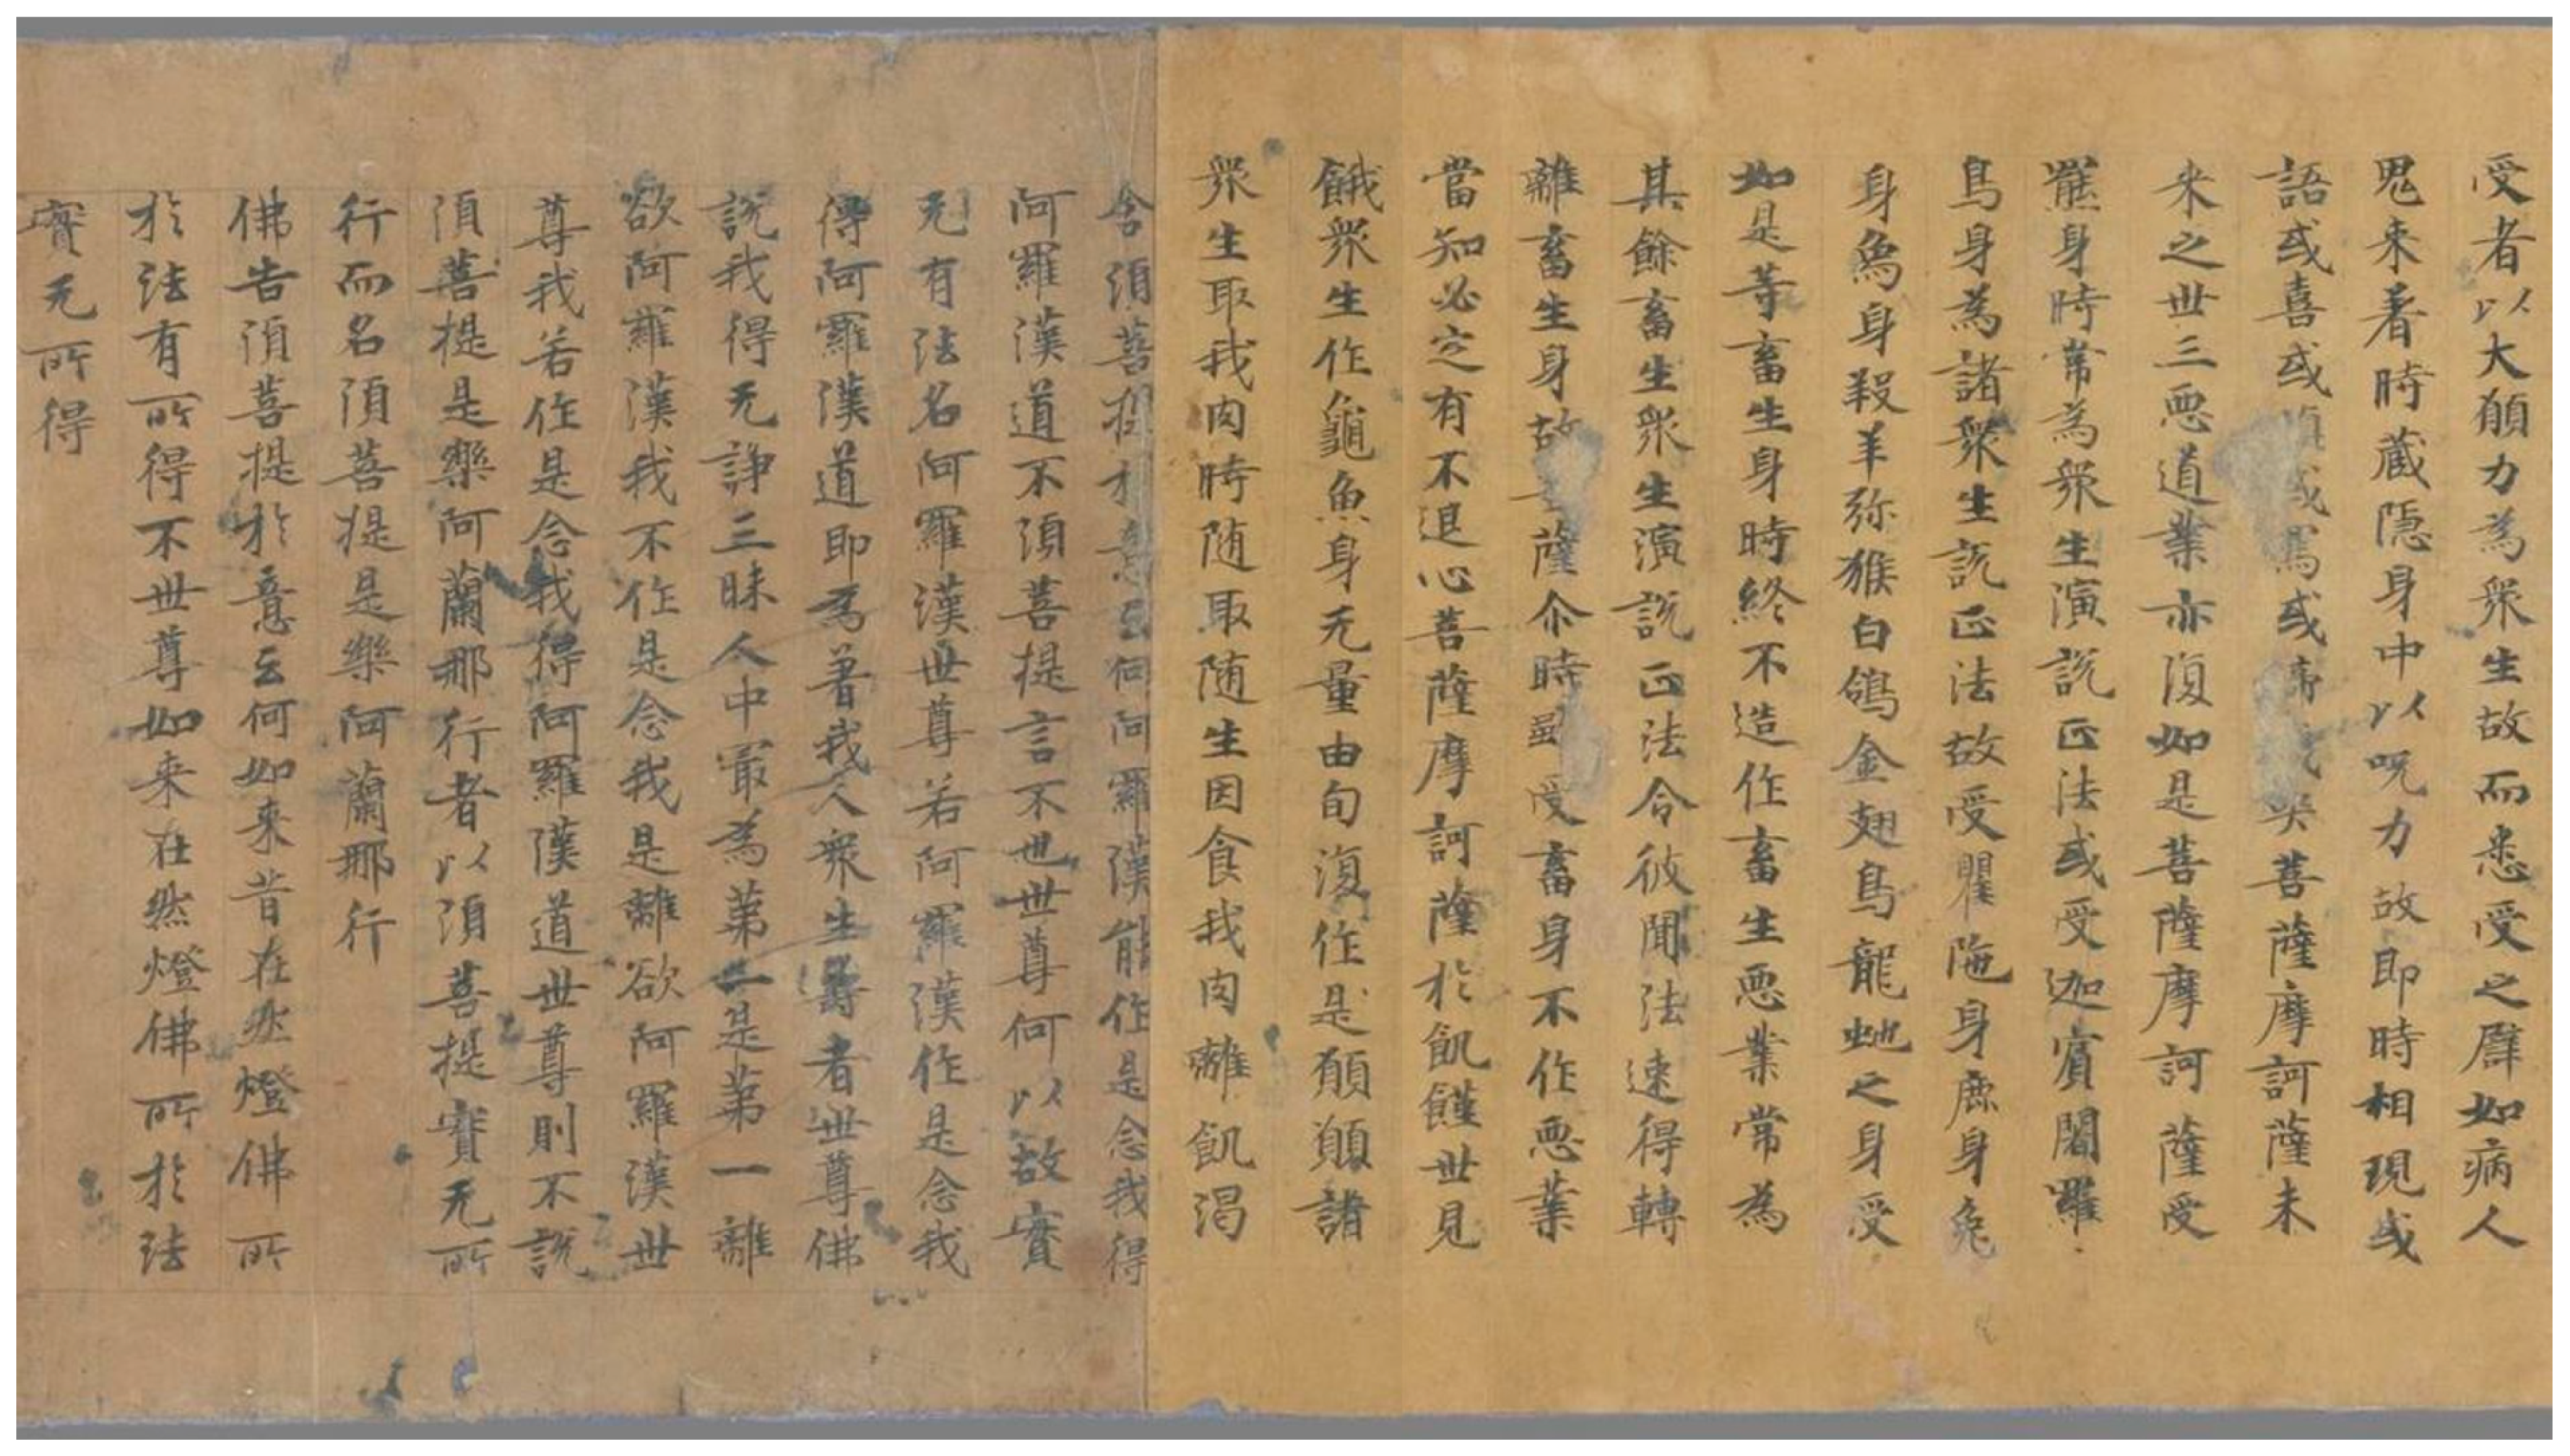 受者以大願力為衆生故而悉受之譬如病人
鬼来著時蔵隠身中以呪力故即時相現或
語或喜或瞋或罵或啼或哭菩薩摩訶薩未
来之世三悪道業亦復如是菩薩摩訶薩受
羆身時常為衆生演説正法或受迦賓闍羅
鳥身為諸衆生説正法故受瞿陁身鹿身兔
身烏身羖羊弥猴白鴿金翅鳥龍虵之身受
如是等畜生身時終不造作畜生悪業常為
其餘畜生衆生演説正法令彼聞法速得轉
離畜生身故菩薩尒時雖受畜身不作悪業
當知必定有不退心菩薩摩訶薩於飢饉世見
餓衆生作龜魚身无量由旬復作是願願諸
衆生取我肉時随取随生因食我肉離飢渇
含須菩提於意云何阿羅漢能作是念我得
阿羅漢道不須菩提言不也世尊何以故實
无有法名阿羅漢世尊若阿羅漢作是念我
得阿羅漢道即為著我人衆生壽者世尊佛
説我得无諍三昧人中㝡為第一是第一離
欲阿羅漢我不作是念我是離欲阿羅漢世
尊我若作是念我得阿羅漢道世尊則不説
須菩提是樂阿蘭那行者以須菩提實无所
行而名須菩提是樂阿蘭那行
佛告須菩提於意云何如来昔在然燈佛所
於法有所得不世尊如来在然燈佛所於法
實无所得